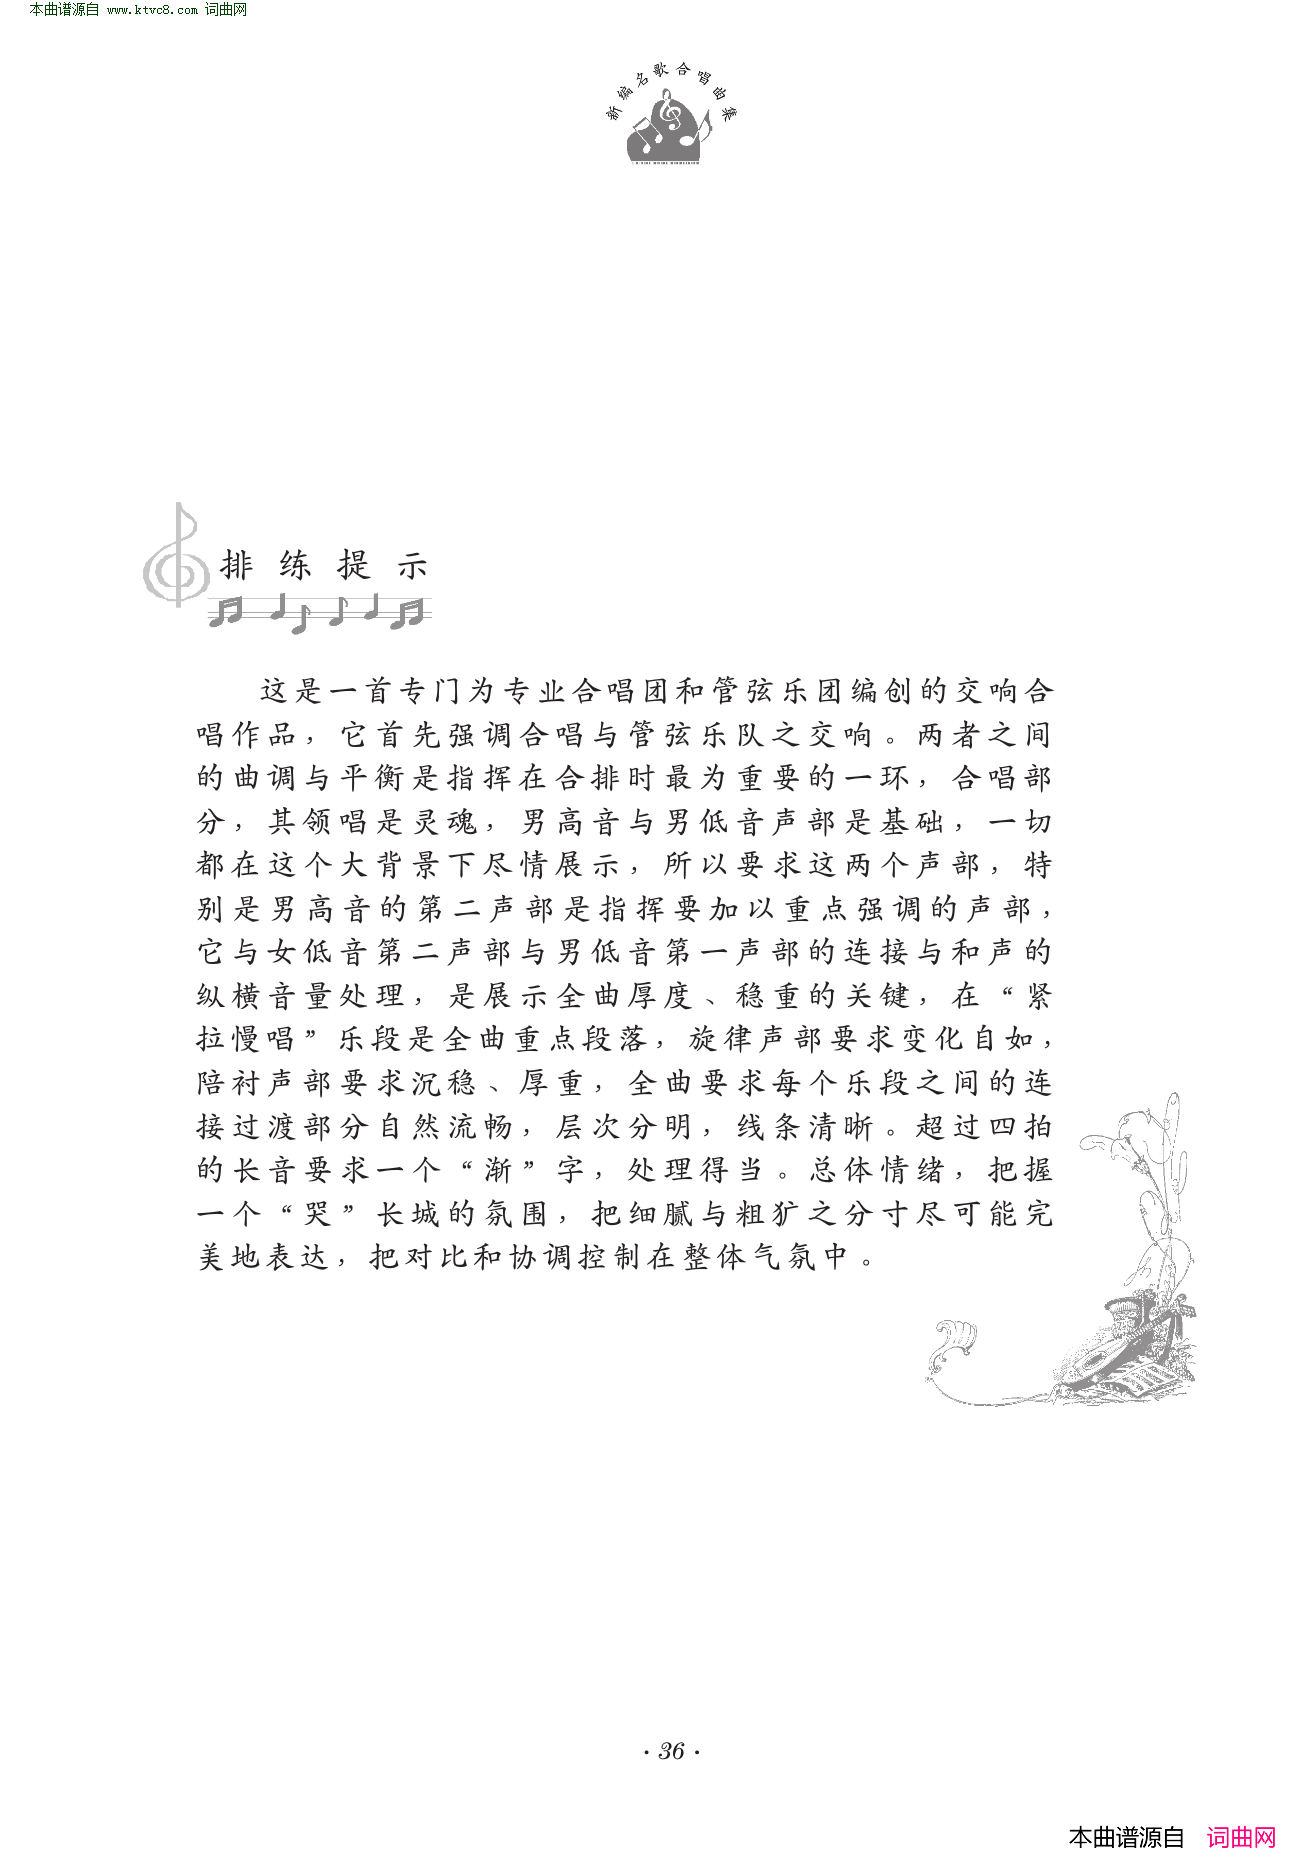 本曲谱源自 www.ktvc8.com 词曲网
新编名歌合唱曲集
排练提示
这是一首专门为专业合唱团和管弦乐团编创的交响合
唱作品，它首先强调合唱与管弦乐队之交响。两者之间
的曲调与平衡是指挥在合排时最为重要的一环，合唱部
分，其领唱是灵魂，男高音与男低音声部是基础，一切
都在这个大背景下尽情展示，所以要求这两个声部，特
别是男高音的第二声部是指挥要加以重点强调的声部，
它与女低音第二声部与男低音第一声部的连接与和声的
纵横音量处理，是展示全曲厚度、稳重的关键，在“紧
拉慢唱”乐段是全曲重点段落，旋律声部要求变化自如，
陪衬声部要求沉稳、厚重，全曲要求每个乐段之间的连
接过渡部分自然流畅，层次分明，线条清晰。超过四拍
的长音要求一个“渐”字，处理得当。总体情绪，把握
一个“哭”长城的氛围，把细腻与粗犷之分寸尽可能完
美地表达，把对比和协调控制在整体气氛中。
· 36 ·
本曲谱源自 词曲网